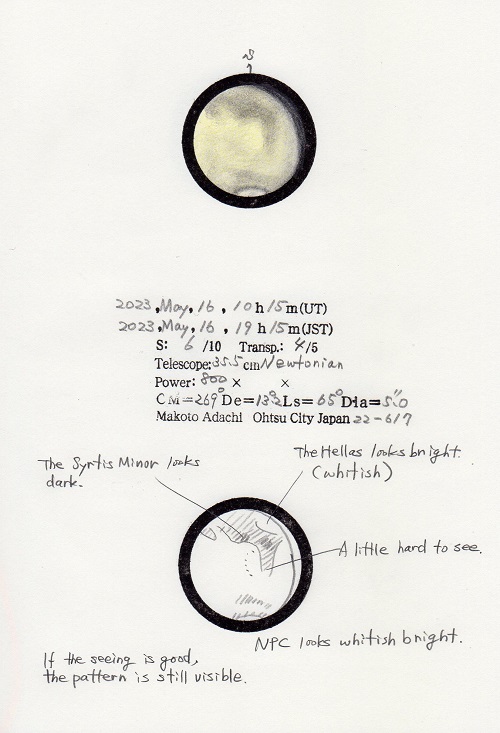 S
2023, May, 16, 10 h 15 m (UT)
2023, May, 16, 19 h 15 m (JST)
S: 6 /10 Transp.: 4/5
Telescope: 35.5 cm Newtonian
Power: 800 × ×
CM=269° De=13°.2 Ls=65° Dia=5".0
Makoto Adachi Ohtsu City Japan 22-617
The Syrtis Minor looks
dark.
The Hellas looks bright.
(whitish)
A little hard to see.
NPC looks whitish bright.
If the seeing is good,
the pattern is still visible.